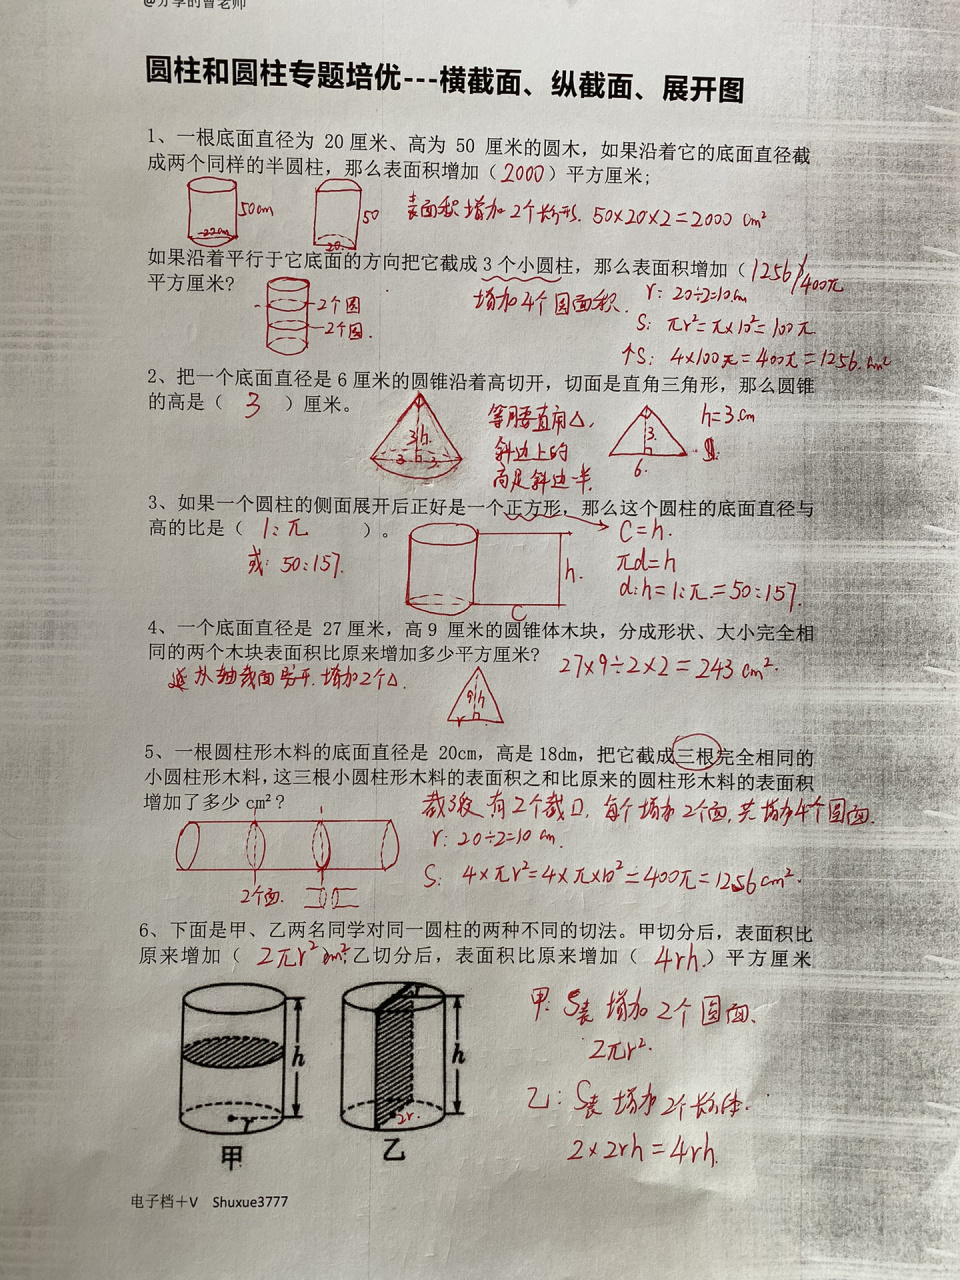 @分享的曾老师
圆柱和圆柱专题培优---横截面、纵截面、展开图
1、一根底面直径为 20 厘米、高为 50 厘米的圆木，如果沿着它的底面直径截
成两个同样的半圆柱，那么表面积增加（2000）平方厘米;
50cm
50
20
表面积增加2个长方形. 50×20×2=2000 cm²
如果沿着平行于它底面的方向把它截成 3 个小圆柱，那么表面积增加（1256/400元
平方厘米?
2个圆
2个圆.
增加4个圆面积.
r: 20÷2=10cm
S: πr²=π×10²=100π
↑S: 4×100π=400π=1256.cm²
2、把一个底面直径是 6 厘米的圆锥沿着高切开，切面是直角三角形，那么圆锥
的高是（ 3 ）厘米。
3 h.
3 3.
等腰直角△,
斜边上的
高是斜边一半.
3.
6.
h=3.cm
3、如果一个圆柱的侧面展开后正好是一个正方形，那么这个圆柱的底面直径与
高的比是（ 1:π ）。
或: 50:157.
h.
C
C=h.
πd=h
d:h=1:π.=50:157.
4、一个底面直径是 27 厘米，高 9 厘米的圆锥体木块，分成形状、大小完全相
同的两个木块表面积比原来增加多少平方厘米?
27×9÷2×2=243 cm².
从轴截面劈开.增加2个△.
9 h
r
5、一根圆柱形木料的底面直径是 20cm，高是 18dm，把它截成三根完全相同的
小圆柱形木料，这三根小圆柱形木料的表面积之和比原来的圆柱形木料的表面积
增加了多少 cm²?
截3段 有2个截口, 每个增加2个面,共增加4个圆面.
r: 20÷2=10 cm.
S: 4×πr²=4×π×10²=400π=1256cm².
2个面.
6、下面是甲、乙两名同学对同一圆柱的两种不同的切法。甲切分后，表面积比
原来增加（ 2πr² cm².乙切分后，表面积比原来增加（ 4rh.）平方厘米
h
r
甲
h
r
2r.
乙
甲: S表 增加2个圆面、
2πr².
乙: S表 增加2个长方体.
2×2rh=4rh.
电子档+V Shuxue3777